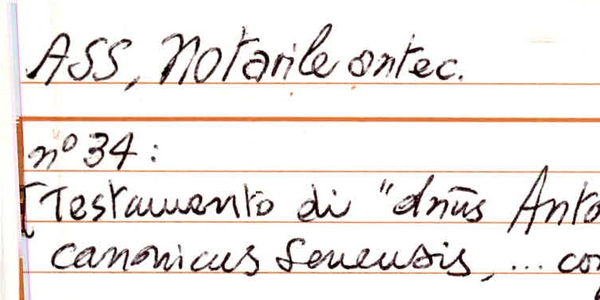 ASS, Notarile antec.
n° 34:
[Testamento di "dn̄us Anto
canonicus Senensis, ... co